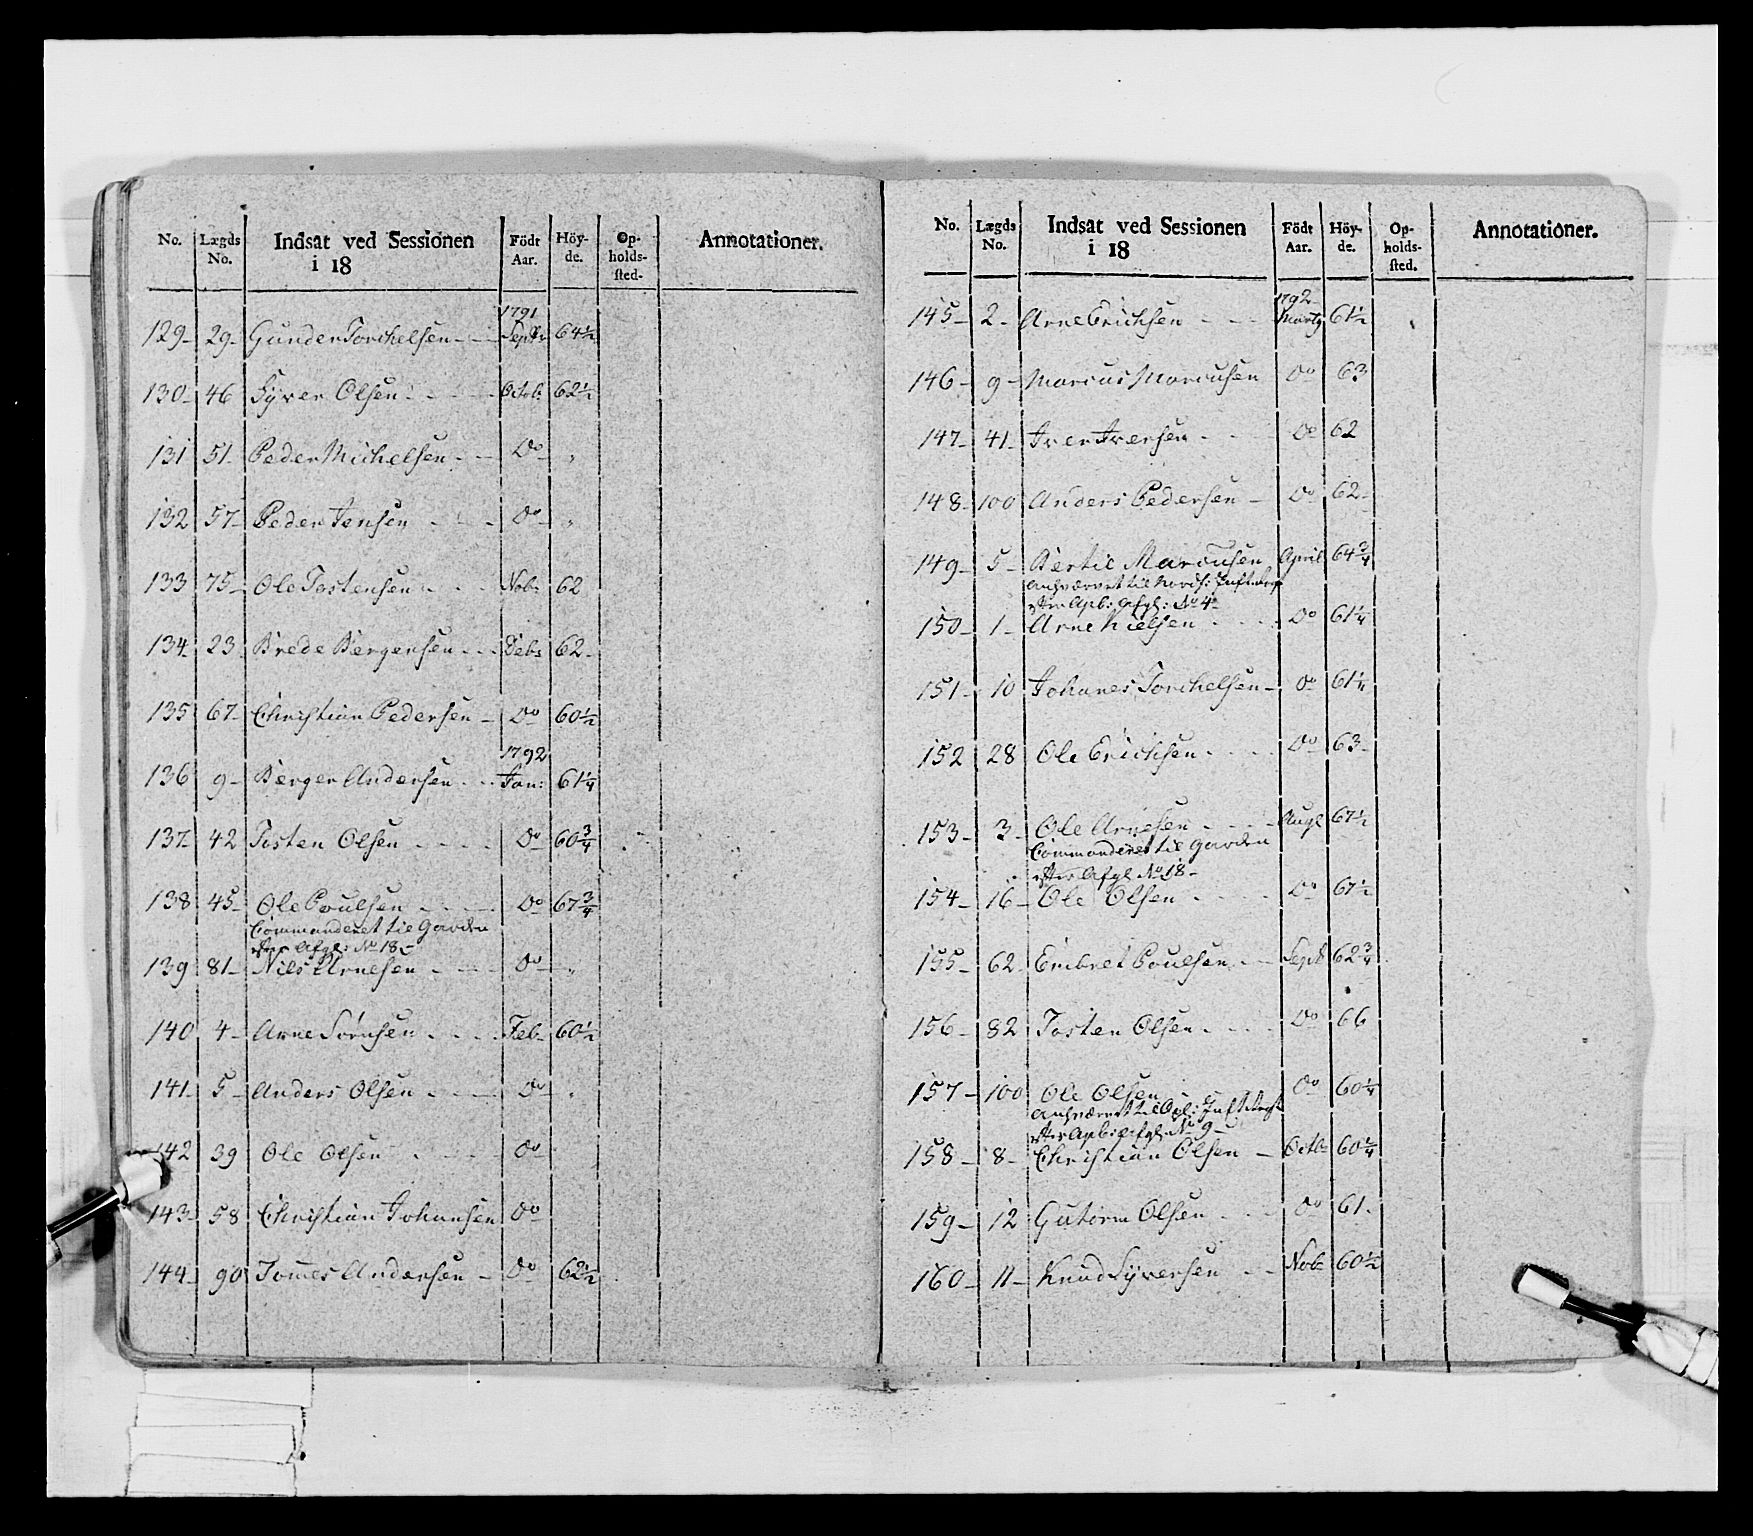 No. Lægds No. Indsat ved Sessionen i 18 Födt Aar. Höyde. Opholdssted. Annotationer.
1791
129- 29- Gunder Torchelsen - - Septr 64½
130- 46 Syver Olsen - - - Octob: 62½
131 51- Peder Michelsen - - Do "
132 57- Peder Jensen - - - Do "
133 75- Ole Tostensen - - - Nob: 62
134- 23- Brede Bergersen - - - Deb: 62-
135 67- Christian Pedersen - Do 60½
1792
136 9- Berger Andersen - - Jan: 61¼
137- 42 Tosten Olsen - - - - Do 60¾
138 45- Ole Poulsen - - - - Do 67¾
Commanderet til Garden
efter Afgl: No 18-
139 81- Nils Arnesen - - - Do "
140 4- Arne Sörnsen - - - - Feb- 60½
141- 5- Anders Olsen - - - - Do "
142 39 Ole Olsen - - - - Do
143- 58 Christian Johansen Do
144- 90 Tomes Andersen - Do 62½
No. Lægds No. Indsat ved Sessionen i 18 Födt Aar. Höyde. Opholdssted. Annotationer.
1792
145- 2- Arne Erichsen - - - Martz 61½
146- 9- Marcus Marcusen Do 63
147- 41- Iver Iversen - - Do 62
148- 100 Anders Pedersen - Do 62-
149- 5- Bertil Marcusen April 64¾
anhværvet til Nordf: Inft: Regt
efter Apb: Afgl: No 4-
150- 1- Arne Nielsen - - - - Do 61¼
151- 10 Johanes Torchelsen- Do 61¼
152 28 Ole Erichsen - - - Do 63-
153- 3- Ole Arnesen - - - - Augl 67½
Commanderet til Garden
efter Afgl No 18-
154- 16- Ole Olsen - - - - Do 67½
155- 62- Embret Poulsen - - Sept 62¾
156- 82 Tosten Olsen - - - Do 66
157- 100 Ole Olsen - Do 60¼
anhværvet til Opl: Inft: Regt
efter Apb: Afgl: No 9-
158- 8- Christian Olsen - Octb- 60¼
159- 12 Gutorm Olsen - - - Do 61-
160- 11- Knud Syversen - - Nob- 60½